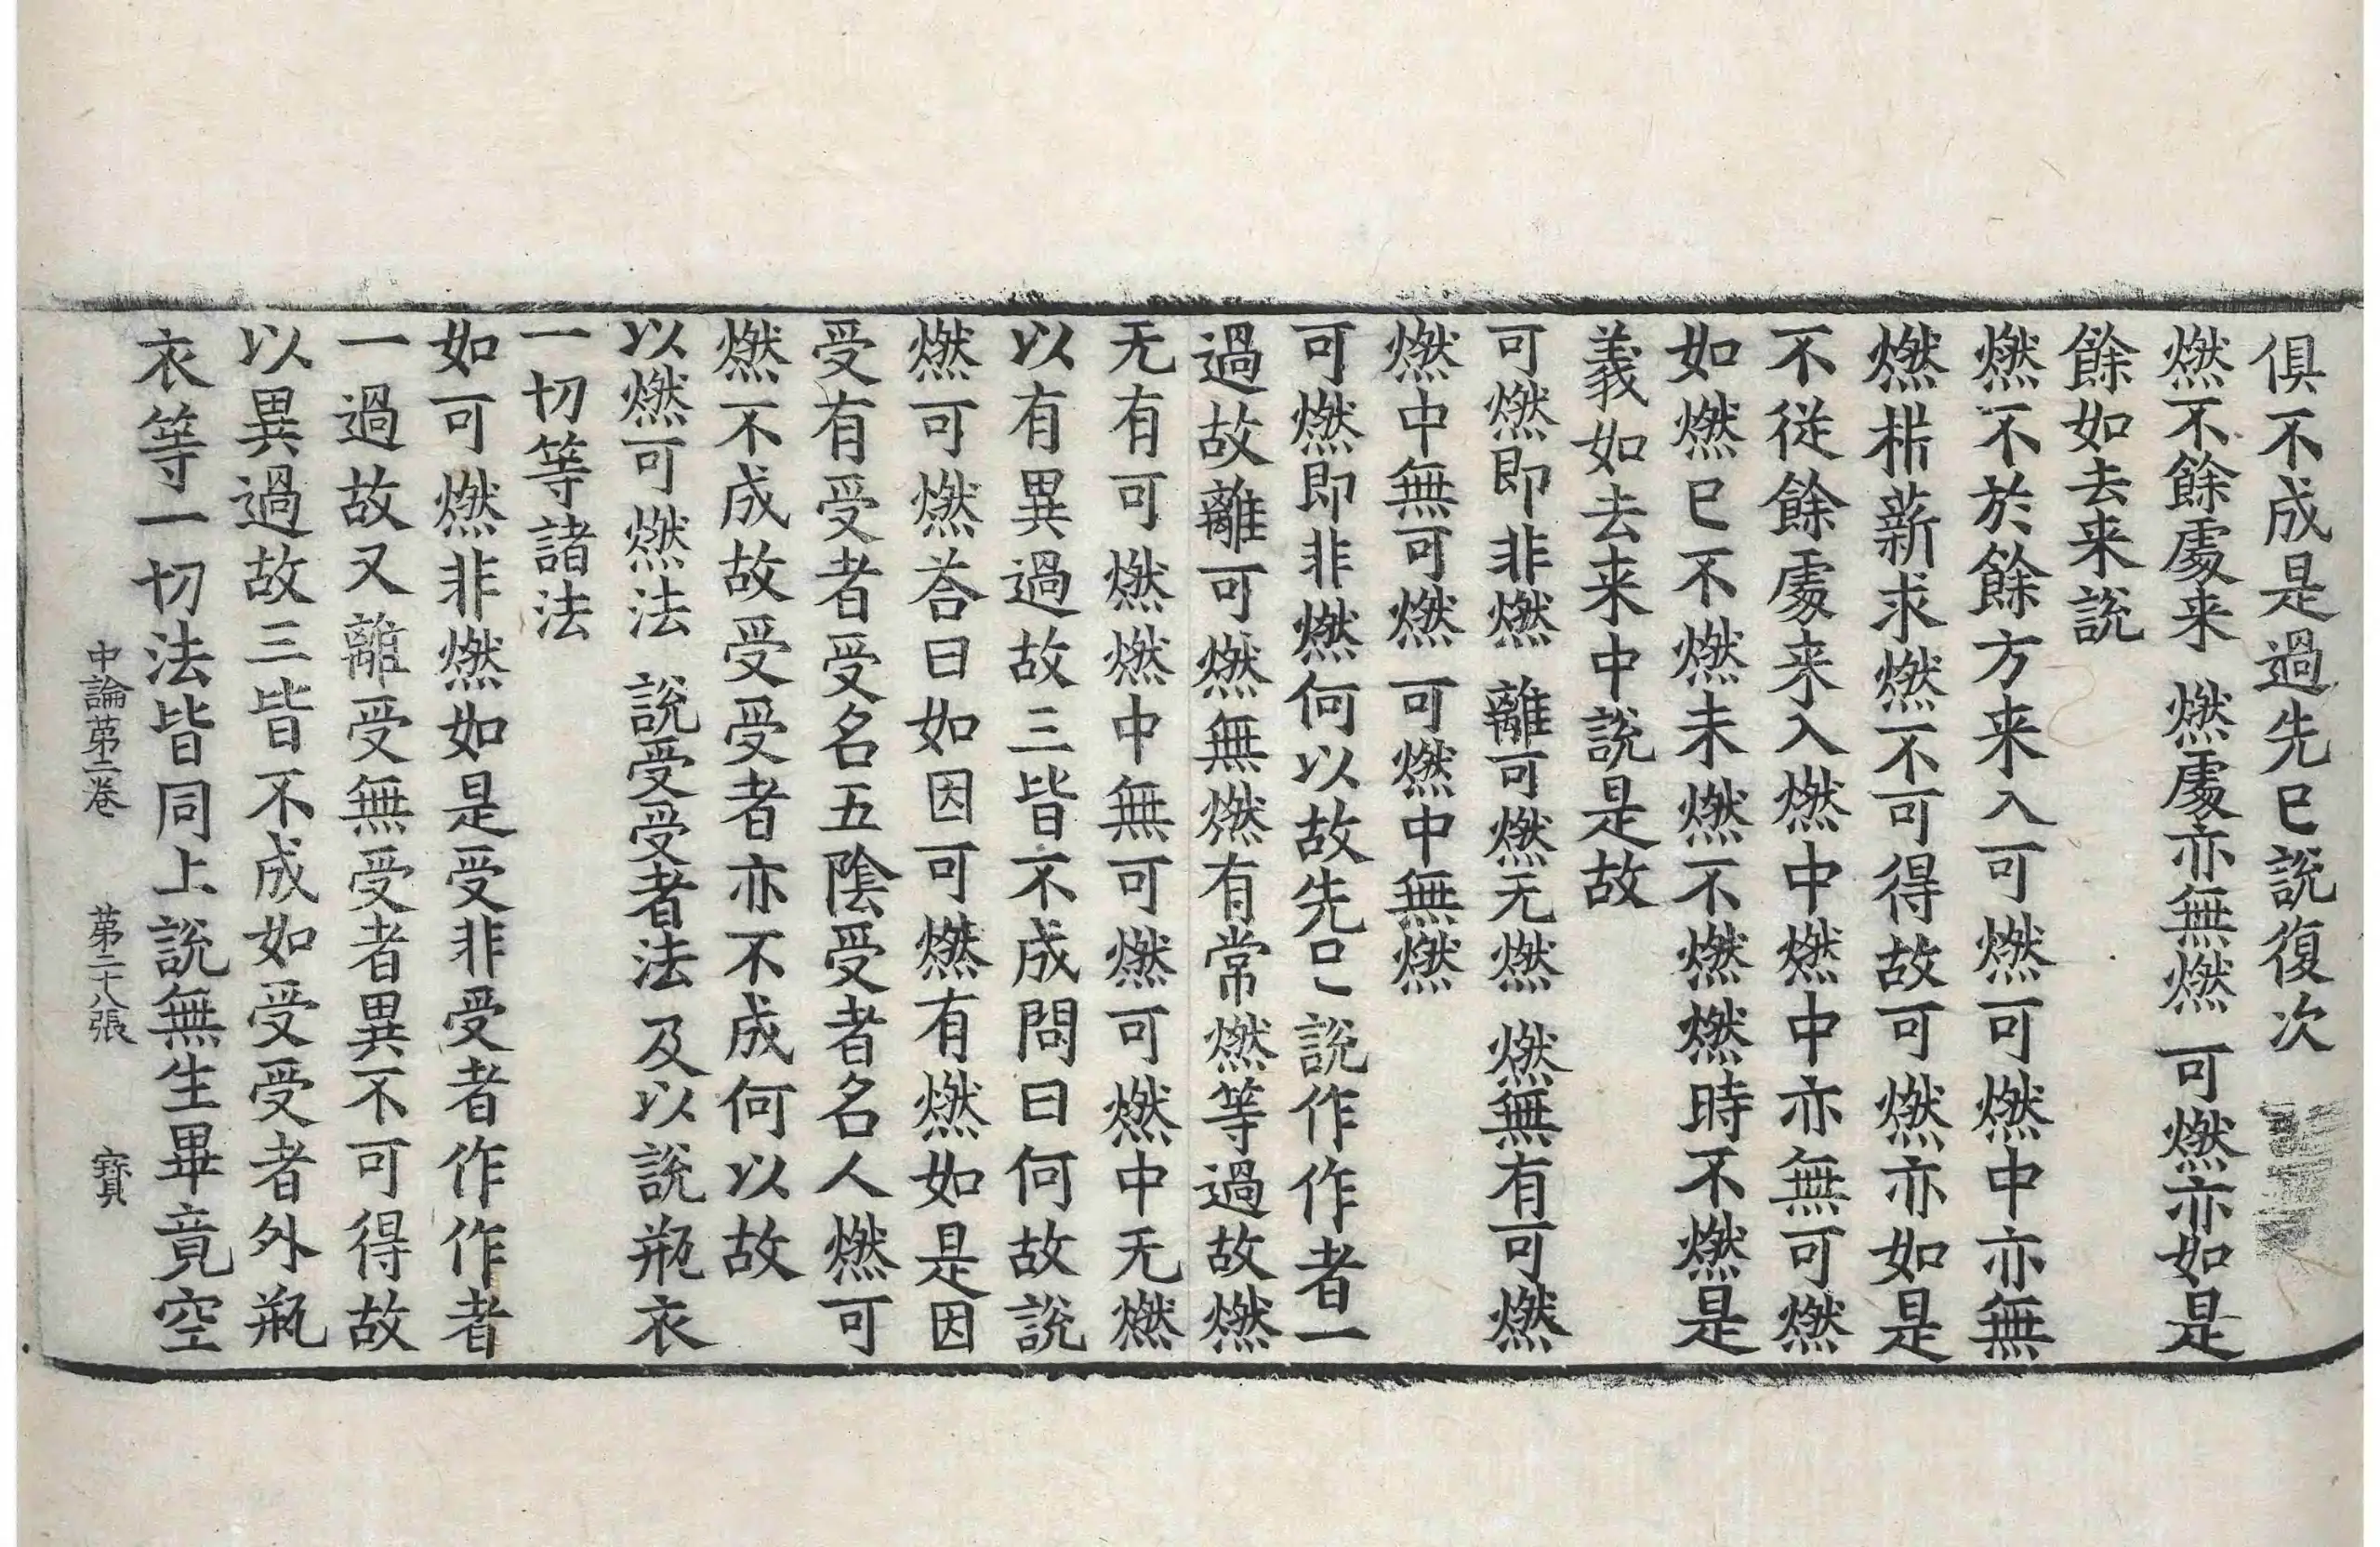 俱不成是過先已說復次
燃不餘處来 燃處亦無燃 可燃亦如是
餘如去来說
燃不於餘方来入可燃可燃中亦無
燃㭊薪求燃不可得故可燃亦如是
不從餘處来入燃中燃中亦無可燃
如燃已不燃未燃不燃燃時不燃是
義如去来中說是故
可燃即非燃 離可燃无燃 燃無有可燃
燃中無可燃 可燃中無燃
可燃即非燃何以故先已說作作者一
過故離可燃無燃有常燃等過故燃
无有可燃燃中無可燃可燃中无燃
以有異過故三皆不成問曰何故說
燃可燃荅曰如因可燃有燃如是因
受有受者受名五陰受者名人燃可
燃不成故受受者亦不成何以故
以燃可燃法 說受受者法 及以說瓶衣
一切等諸法
如可燃非燃如是受非受者作作者
一過故又離受無受者異不可得故
以異過故三皆不成如受受者外瓶
衣等一切法皆同上說無生畢竟空
中論第二卷 第二十八張 寳